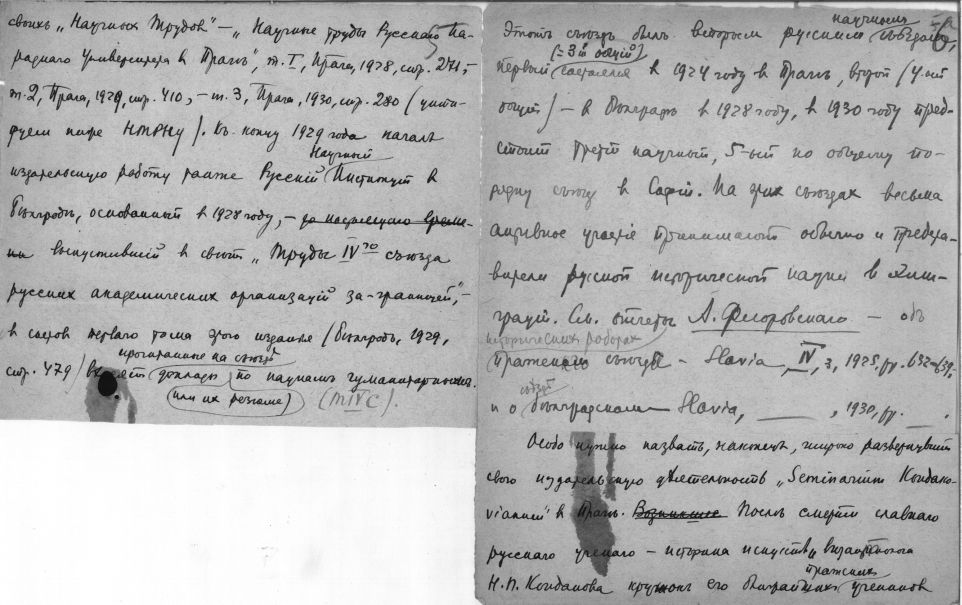 своихъ „Научныхъ Трудовъ“ — „Научные труды Русскаго На-
роднаго Университета въ Прагѣ“, т. I, Прага, 1928, стр. 271,—
т. 2, Прага, 1929, стр. 410, — т. 3, Прага, 1930, стр. 280 (цити-
руемъ ниже НТРНУ). Къ концу 1929 года началъ
Научный
издательскую работу также Русскій Институтъ въ
Бѣлградѣ, основанный въ 1928 году, — до настоящаго време-
ни выпустившій въ свѣтъ „Труды IV го съѣзда
русскихъ академическихъ организацій за-границей“,—
в составъ перваго тома этого изданія (Бѣлградъ, 1929,
прочитанные на съѣздѣ
стр. 479) доклады по наукамъ гуманитарнымъ.
(или их резюме) (тIVС).
научнымъ
Этотъ съѣздъ былъ вторым русскимъ съѣздомъ,
(= 3й общій)
первый состоялся в 1924 году в Прагѣ, второй (4-ый
общій) — в Бѣлградѣ в 1928 году, в 1930 году пред-
стоит третій научный, 5-ый по общему по-
рядку съѣзд в Софіи. На этих съѣздах весьма
активное участіе принимают обычно и предста-
вители русской исторической науки в эми-
граціи. См. отчеты А. Флоровскаго — объ
историческихъ работах
пражском съѣздѣ — Slavia, IV, 3, 1925, pp. 632-639,
съѣздѣ
и о бѣлградском — Slavia, , 1930, pp. .
Особо нужно назвать, наконецъ, широко развернувшій
свою издательскую дѣятельность „Seminarium Kondako-
vianum“ в Прагѣ. Возникшее Послѣ смерти славнаго
русскаго ученаго — историка искусства византійскаго
пражскихъ
Н. П. Кондакова кружокъ его ближайших учениковъ